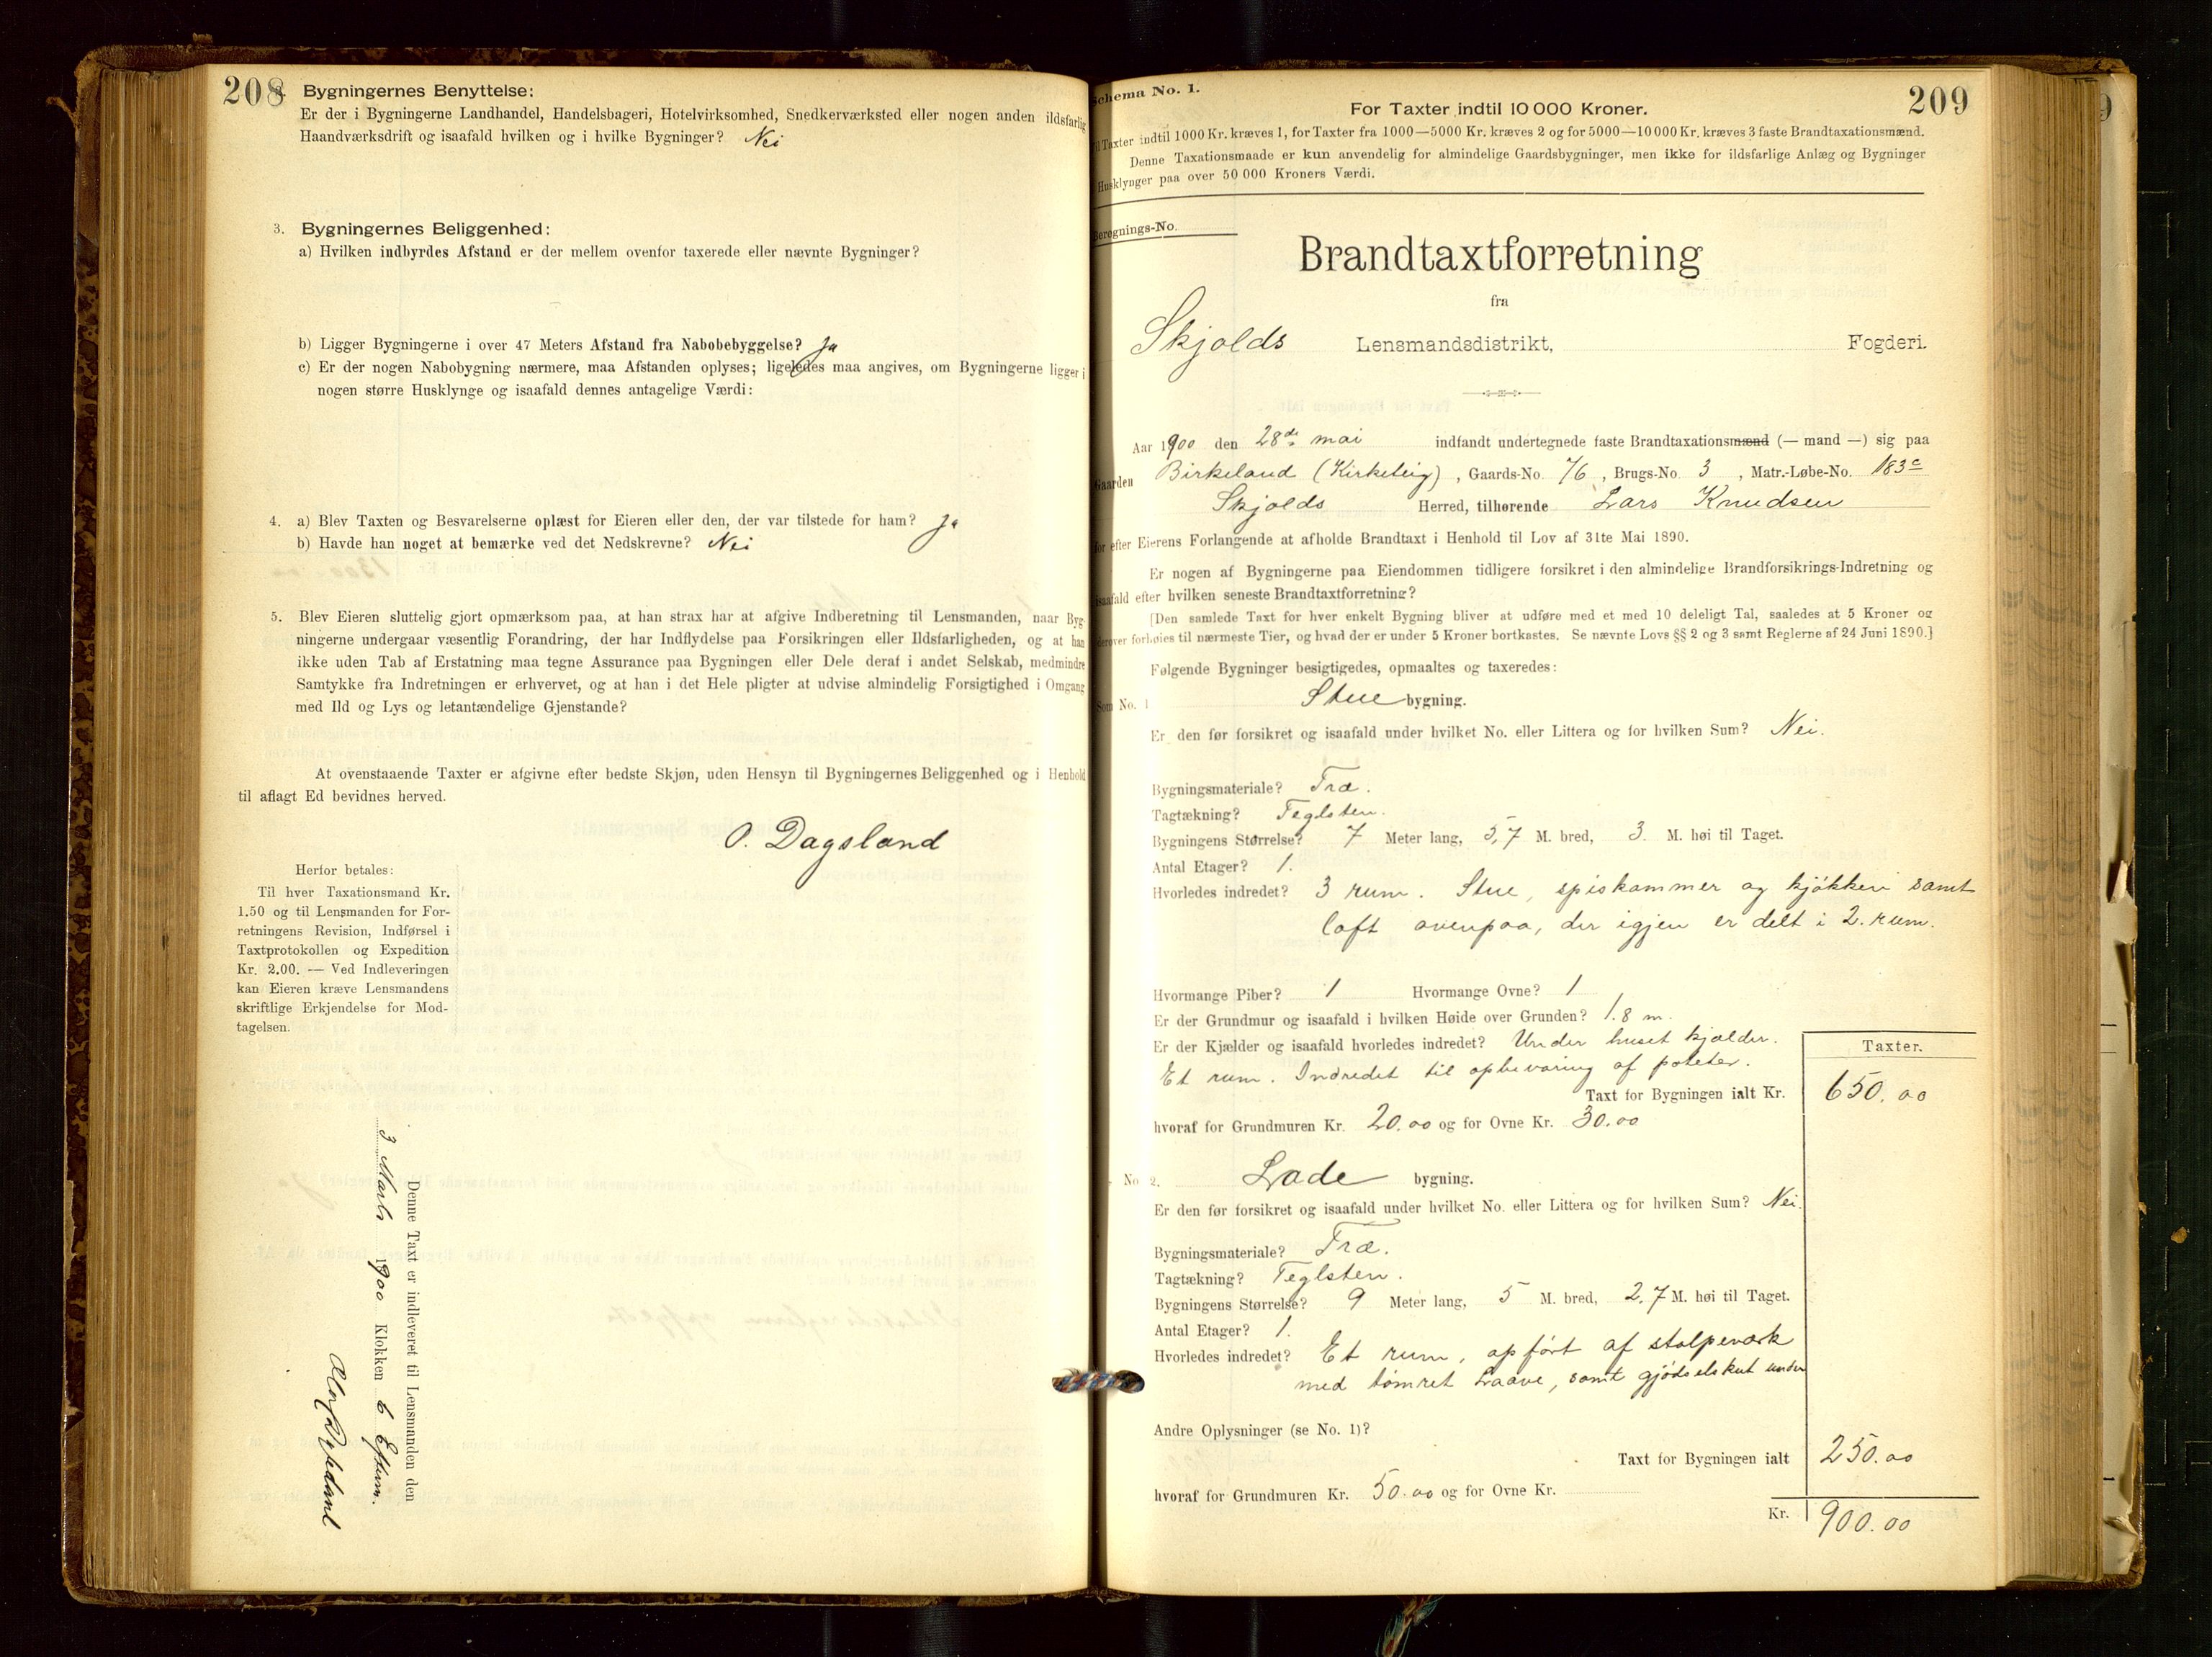 208
Bygningernes Benyttelse:
Er der i Bygningerne Landhandel, Handelsbageri, Hotelvirksomhed, Snedkerværksted eller nogen anden ildsfarlig
Haandværksdrift og isaafald hvilken og i hvilke Bygninger? Nei
3. Bygningernes Beliggenhed:
a) Hvilken indbyrdes Afstand er der mellem ovenfor taxerede eller nævnte Bygninger?
b) Ligger Bygningerne i over 47 Meters Afstand fra Nabobebyggelse? Ja
c) Er der nogen Nabobygning nærmere, maa Afstanden oplyses; ligeledes maa angives, om Bygningerne ligger i
nogen større Husklynge og isaafald dennes antagelige Værdi:
4. a) Blev Taxten og Besvarelserne oplæst for Eieren eller den, der var tilstede for ham? Ja
b) Havde han noget at bemærke ved det Nedskrevne? Nei
5. Blev Eieren sluttelig gjort opmærksom paa, at han strax har at afgive Indberetning til Lensmanden, naar Byg-
ningerne undergaar væsentlig Forandring, der har Indflydelse paa Forsikringen eller Ildsfarligheden, og at han
ikke uden Tab af Erstatning maa tegne Assurance paa Bygningen eller Dele deraf i andet Selskab, medmindre
Samtykke fra Indretningen er erhvervet, og at han i det Hele pligter at udvise almindelig Forsigtighed i Omgang
med Ild og Lys og letantændelige Gjenstande?
At ovenstaaende Taxter er afgivne efter bedste Skjøn, uden Hensyn til Bygningernes Beliggenhed og i Henhold
til aflagt Ed bevidnes herved.
O. Dagsland
Herfor betales:
Til hver Taxationsmand Kr.
1.50 og til Lensmanden for For-
retningens Revision, Indførsel i
Taxtprotokollen og Expedition
Kr. 2.00. — Ved Indleveringen
kan Eieren kræve Lensmandens
skriftlige Erkjendelse for Mod-
tagelsen.
Denne Taxt er indleveret til Lensmanden den
3 Marts 1900 Klokken 6 Efterm.
Schema No. 1.
209
For Taxter indtil 10 000 Kroner.
Til Taxter indtil 1000 Kr. kræves 1, for Taxter fra 1000—5000 Kr. kræves 2 og for 5000—10 000 Kr. kræves 3 faste Brandtaxationsmænd.
Denne Taxationsmaade er kun anvendelig for almindelige Gaardsbygninger, men ikke for ildsfarlige Anlæg og Bygninger
Husklynger paa over 50 000 Kroners Værdi.
Beregnings-No.
Brandtaxtforretning
fra
Skjolds Lensmandsdistrikt, Fogderi.
Aar 1900 den 28de mai indfandt undertegnede faste Brandtaxationsmænd (— mand —) sig paa
Gaarden Birkeland (Kirketeig), Gaards-No. 76, Brugs-No 3, Matr.-Løbe-No. 183c
Skjolds Herred, tilhørende Lars Knudsen
for efter Eierens Forlangende at afholde Brandtaxt i Henhold til Lov af 31te Mai 1890.
Er nogen af Bygningerne paa Eiendommen tidligere forsikret i den almindelige Brandforsikrings-Indretning og
isaafald efter hvilken seneste Brandtaxtforretning?
[Den samlede Taxt for hver enkelt Bygning bliver at udføre med et med 10 deleligt Tal, saaledes at 5 Kroner og
derover forhøies til nærmeste Tier, og hvad der er under 5 Kroner bortkastes. Se nævnte Lovs §§ 2 og 3 samt Reglerne af 24 Juni 1890.]
Følgende Bygninger besigtigedes, opmaaltes og taxeredes:
Som No. 1 Stue bygning.
Er den før forsikret og isaafald under hvilket No. eller Littera og for hvilken Sum? Nei.
Bygningsmateriale? Træ.
Tagtækning? Teglsten.
Bygningens Størrelse? 7 Meter lang, 5,7 M. bred, 3. M. høi til Taget.
Antal Etager? 1.
Hvorledes indredet? 3 rum. Stue, spiskammer og kjøkken samt
loft ovenpaa, der igjen er delt i 2. rum.
Hvormange Piber? 1 Hvormange Ovne? 1
Er der Grundmur og isaafald i hvilken Høide over Grunden? 1.8 m.
Er der Kjælder og isaafald hvorledes indredet? Under huset kjælder.
Et rum. Indredet til opbevaring af poteter.
Taxter.
Taxt for Bygningen ialt Kr. 650.00
hvoraf for Grundmuren Kr. 20.00 og for Ovne Kr. 30.00
No 2. Lade bygning.
Er den før forsikret og isaafald under hvilket No. eller Littera og for hvilken Sum? Nei.
Bygningsmateriale? Træ.
Tagtækning? Teglsten.
Bygningens Størrelse? 9 Meter lang, 5 M. bred, 2.7 M. høi til Taget.
Antal Etager? 1.
Hvorledes indredet? Et rum, opført af stolpeværk
med tømret Laave, samt gjødselskut under
Andre Oplysninger (se No. 1)?
Taxt for Bygningen ialt 250.00
hvoraf for Grundmuren Kr. 50.00 og for Ovne Kr.
Kr. 900.00